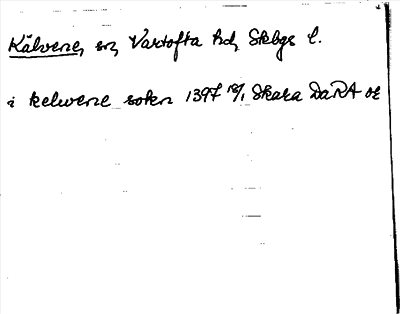 Kälvene, sn, Vartofta hd, Skbgs l.
i kelwene sokn 1397 18/1 Skara DaRA or